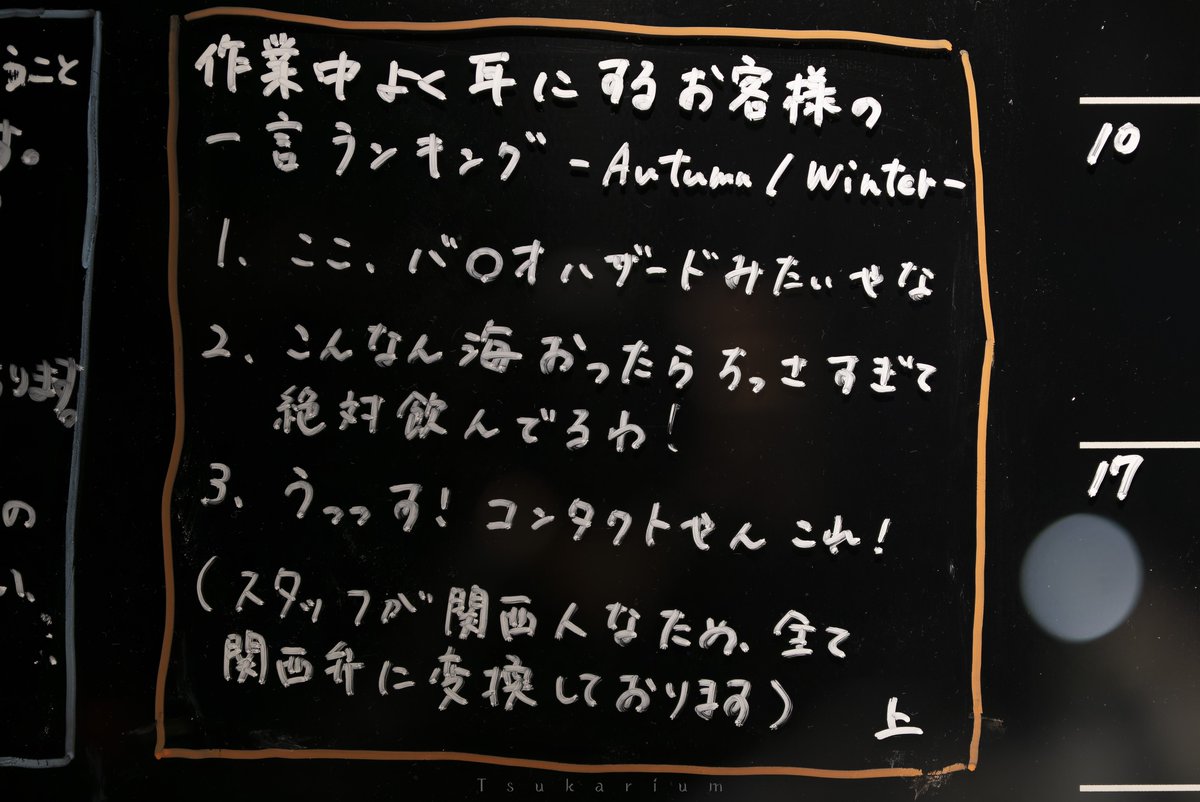 うこと
す。
ります。
の
作業中よく耳にするお客様の
一言ランキング -Autumn/Winter-
1、ここ、バ〇オハザードみたいやな
2、こんなん海おったらちっさすぎて
絶対飲んでるわ!
3、うっっす! コンタクトやん これ!
(スタッフが関西人なため、全て
関西弁に変換しております)
上
10
17
Tsukarium